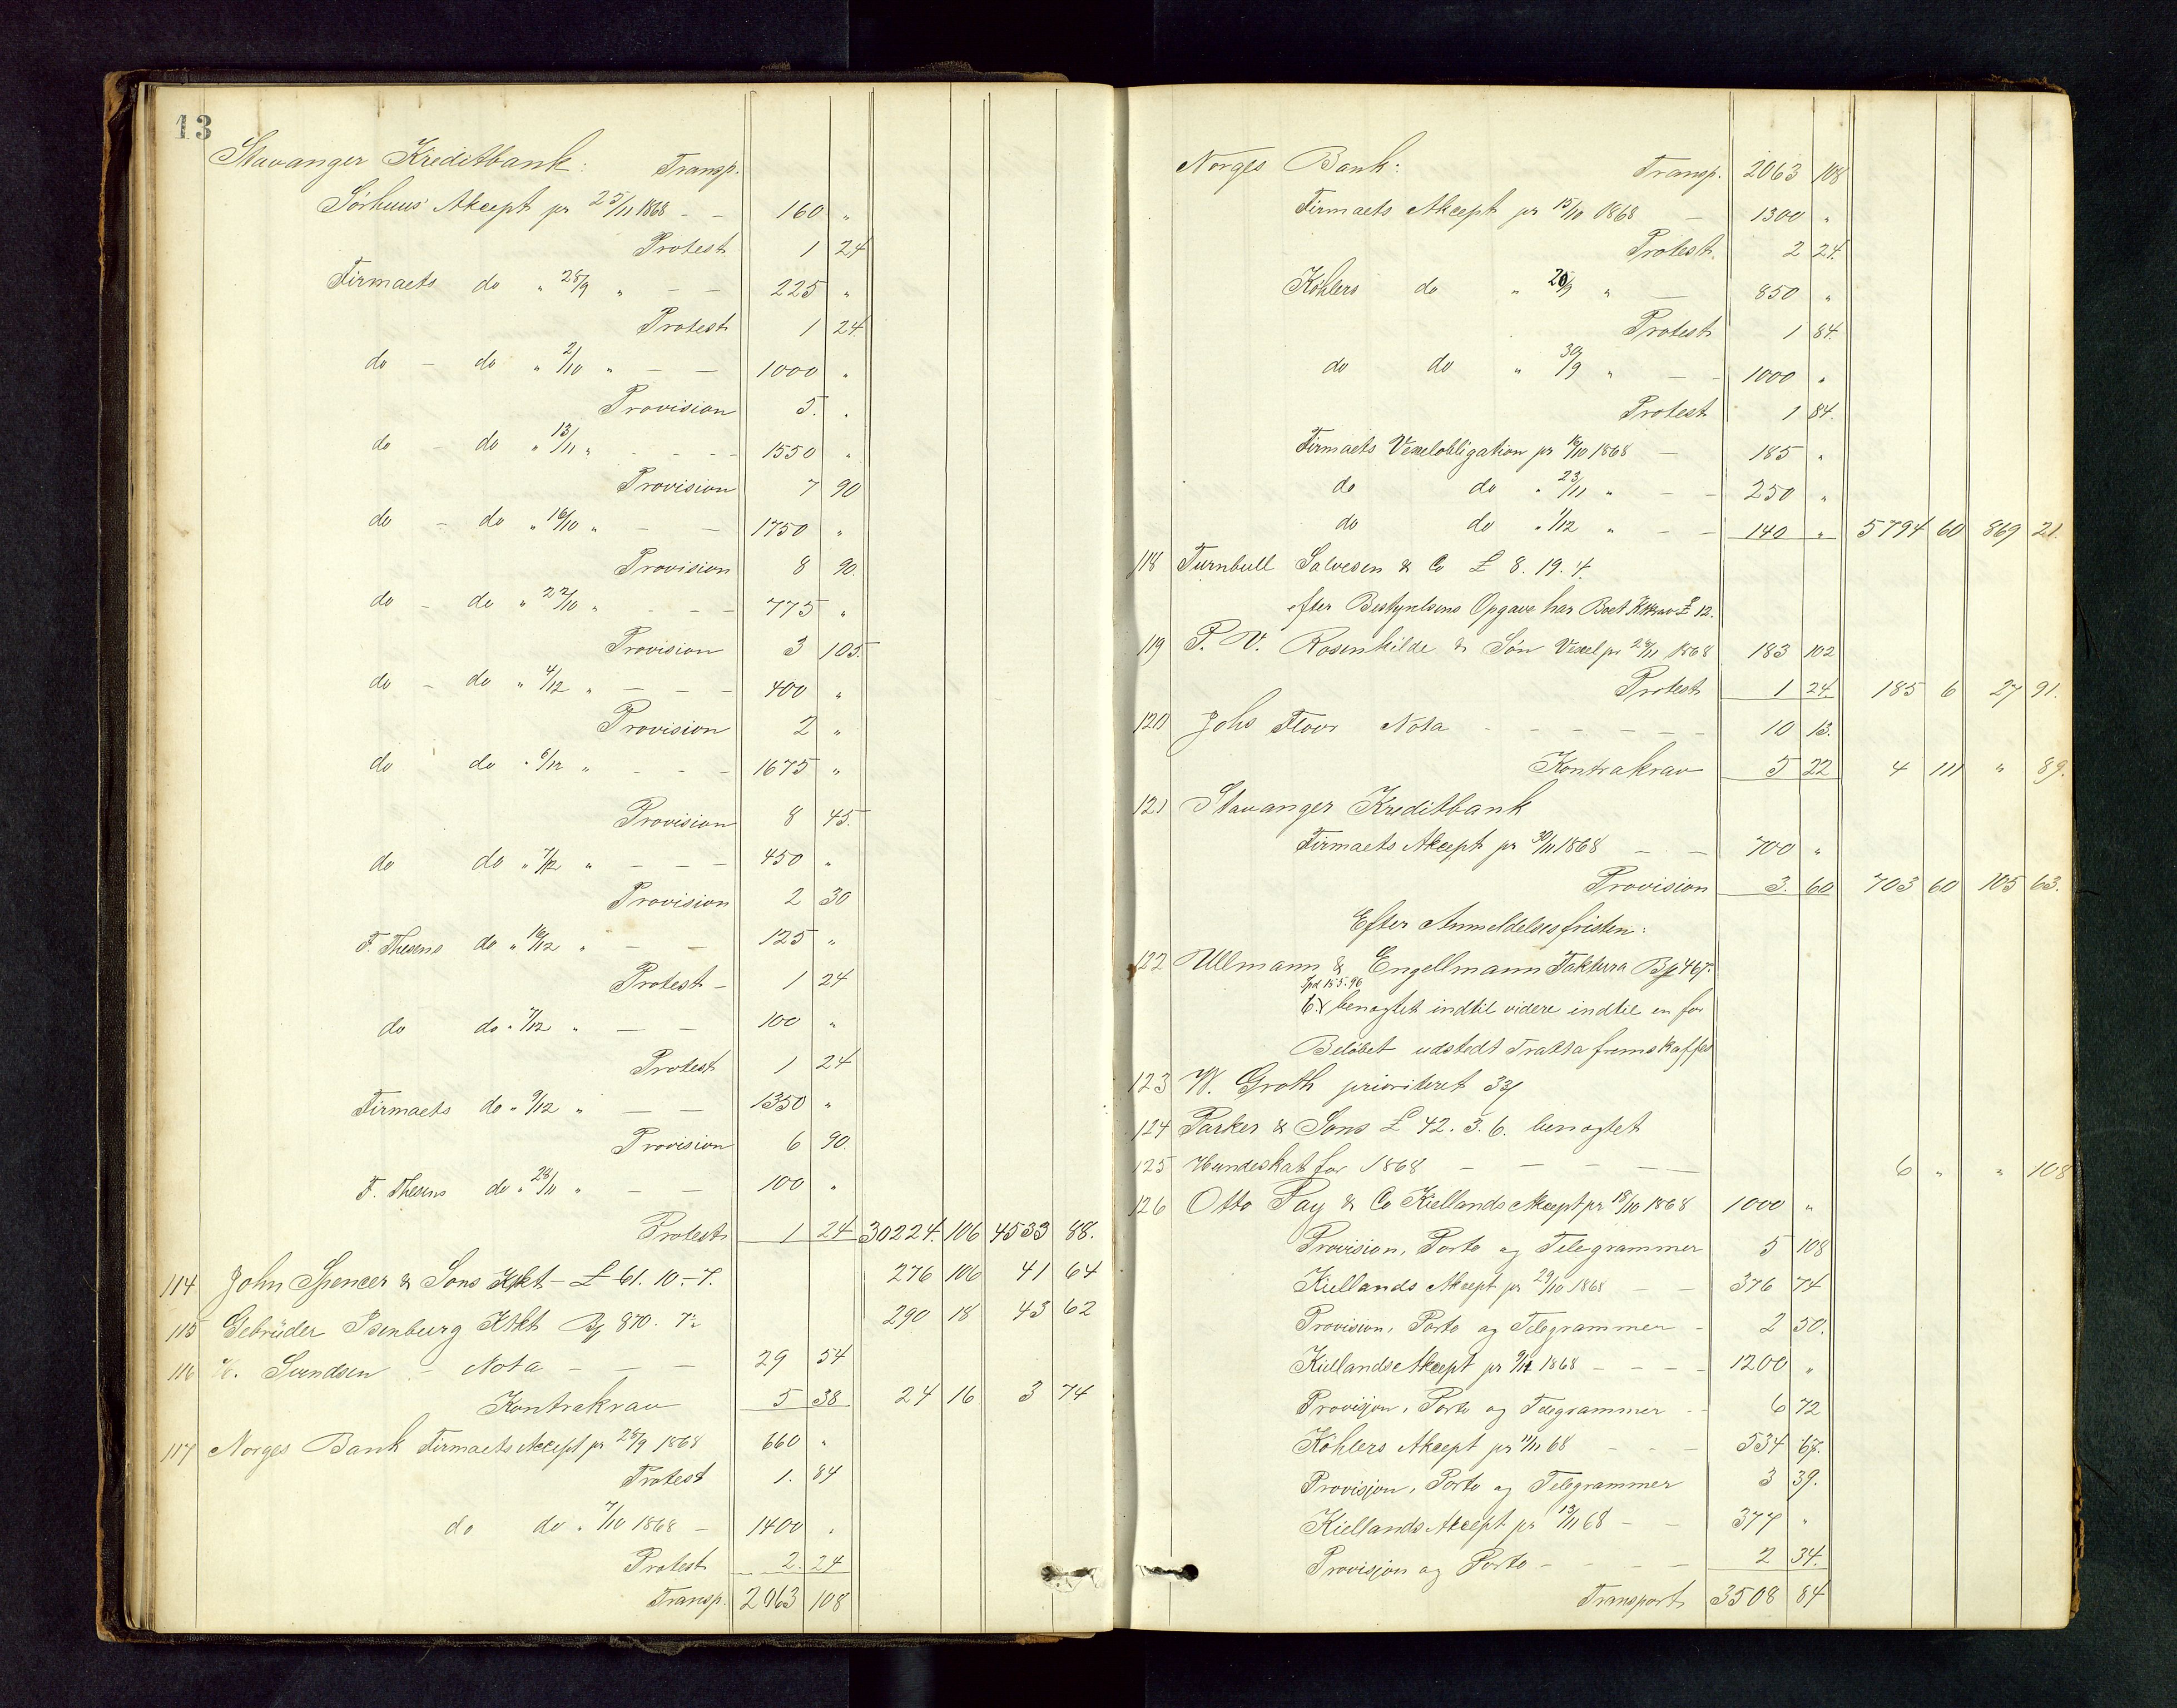 13
Stavanger Kreditbank: Transp.
Sörhuus' Akcept pr 25/11 1868 – – 160 "
Protest 1 24
Firmaets do " 28/9 " – – 225 "
Protest 1 24
do – do " 2/10 " – – 1000 "
Provision 5. "
do – do " 13/11 " – – – – 1550 "
Provision 7 90
do – do " 16/10 " – – 1750 "
Provision 8 90.
do – do " 22/10 " – – – 775 "
Provision 3 105.
do – do " 4/12 " – – – 400 "
Provision 2 "
do do " 6/12 " – – – 1675 "
Provision 8 45.
do do " 7/12 " – – – 450 "
Provision 2 30
F. Thesens do " 16/12 " – – 125 "
Protest – 1 24
do do " 7/12 " – – 100 "
Protest 1 24
Firmaets do " 9/12 " – – 1350 "
Provision 6 90.
F. Thesens do " 28/11 " – – 100 "
Protest 1 24 30224. 106 4533 88.
114 John Spencer & Sons – £ 61. 10. – 7. 276 106 41 64
115 Gebrüder Isenburg 870. 290 18 43 62
116 Sundsen – Nota – – – 29 54
Kontrakrav 5 38 24 16 3 74
117 Norges Bank Firmaets Akcept pr 28/9 1868 660 "
Protest 1. 84
do do " 7/10 1868 – 1400 "
Protest 2. 24
Transp. 2063 108
Norges Bank: Transp. 2063 108
Firmaets Akcept pr 15/10 1868 – 1300 "
Protest. 2 24.
Köhlers do " 20/9 " – 850 "
Protest 1 84.
do do " 30/9 " – – 1000 "
Protest 1 84.
Firmaets Vexelobligation pr 19/10 1868 – 185 "
do do " 23/11 " – – 250 "
do do " 1/12 " – – 140 " 5794 60 869 21.
118 Turnbull Salvesen & Co £ 8. 19. 4.
efter Bestyrelsens Opgave har Boet £ 12.
119 P. V. Rosenkilde & Sön Vexel pr 28/11 1868 183 102
Protest 1 24. 185 6 27 91.
120 Johs Floor Nota – – – – – – 10 13.
Kontrakrav 5 22 4 111 " 89.
121 Stavanger Kreditbank
Firmaets Akcept pr 30/11 1868 – – 700 "
Provision 3. 60 703 60 105 63.
Efter Anmeldelsesfristen:
122 Ullmann & Engellmann Faktura 467.
benegtet indtil videre indtil en for
Belöbet udstedt Tratta fremskaffes
123 W. Groth prioriteret 33/
124 Parker & Sons £ 42. 3. 6. benegtet
125 Hundeskat for 1868 – – – – – 6 " " 108
126 Otto Pay & Co Kiellands Akcept pr 18/10 1868 1000 "
Provision, Porto og Telegrammer 5 108
Kiellands Akcept pr 29/10 1868 – – 376 74
Provision, Porto og Telegrammer – 2 50.
Kiellands Akcept pr 9/11 1868 – – – – 1200 "
Provisjon, Porto og Telegrammer – – 6 72
Köhlers Akcept pr 11/11 68 – – – 534 67.
Provisjon, Porto og Telegrammer 3 39.
Kiellands Akcept pr 13/11 68 – – 377 "
Provisjon og Porto – – – – 2 34.
Transport 3508 84